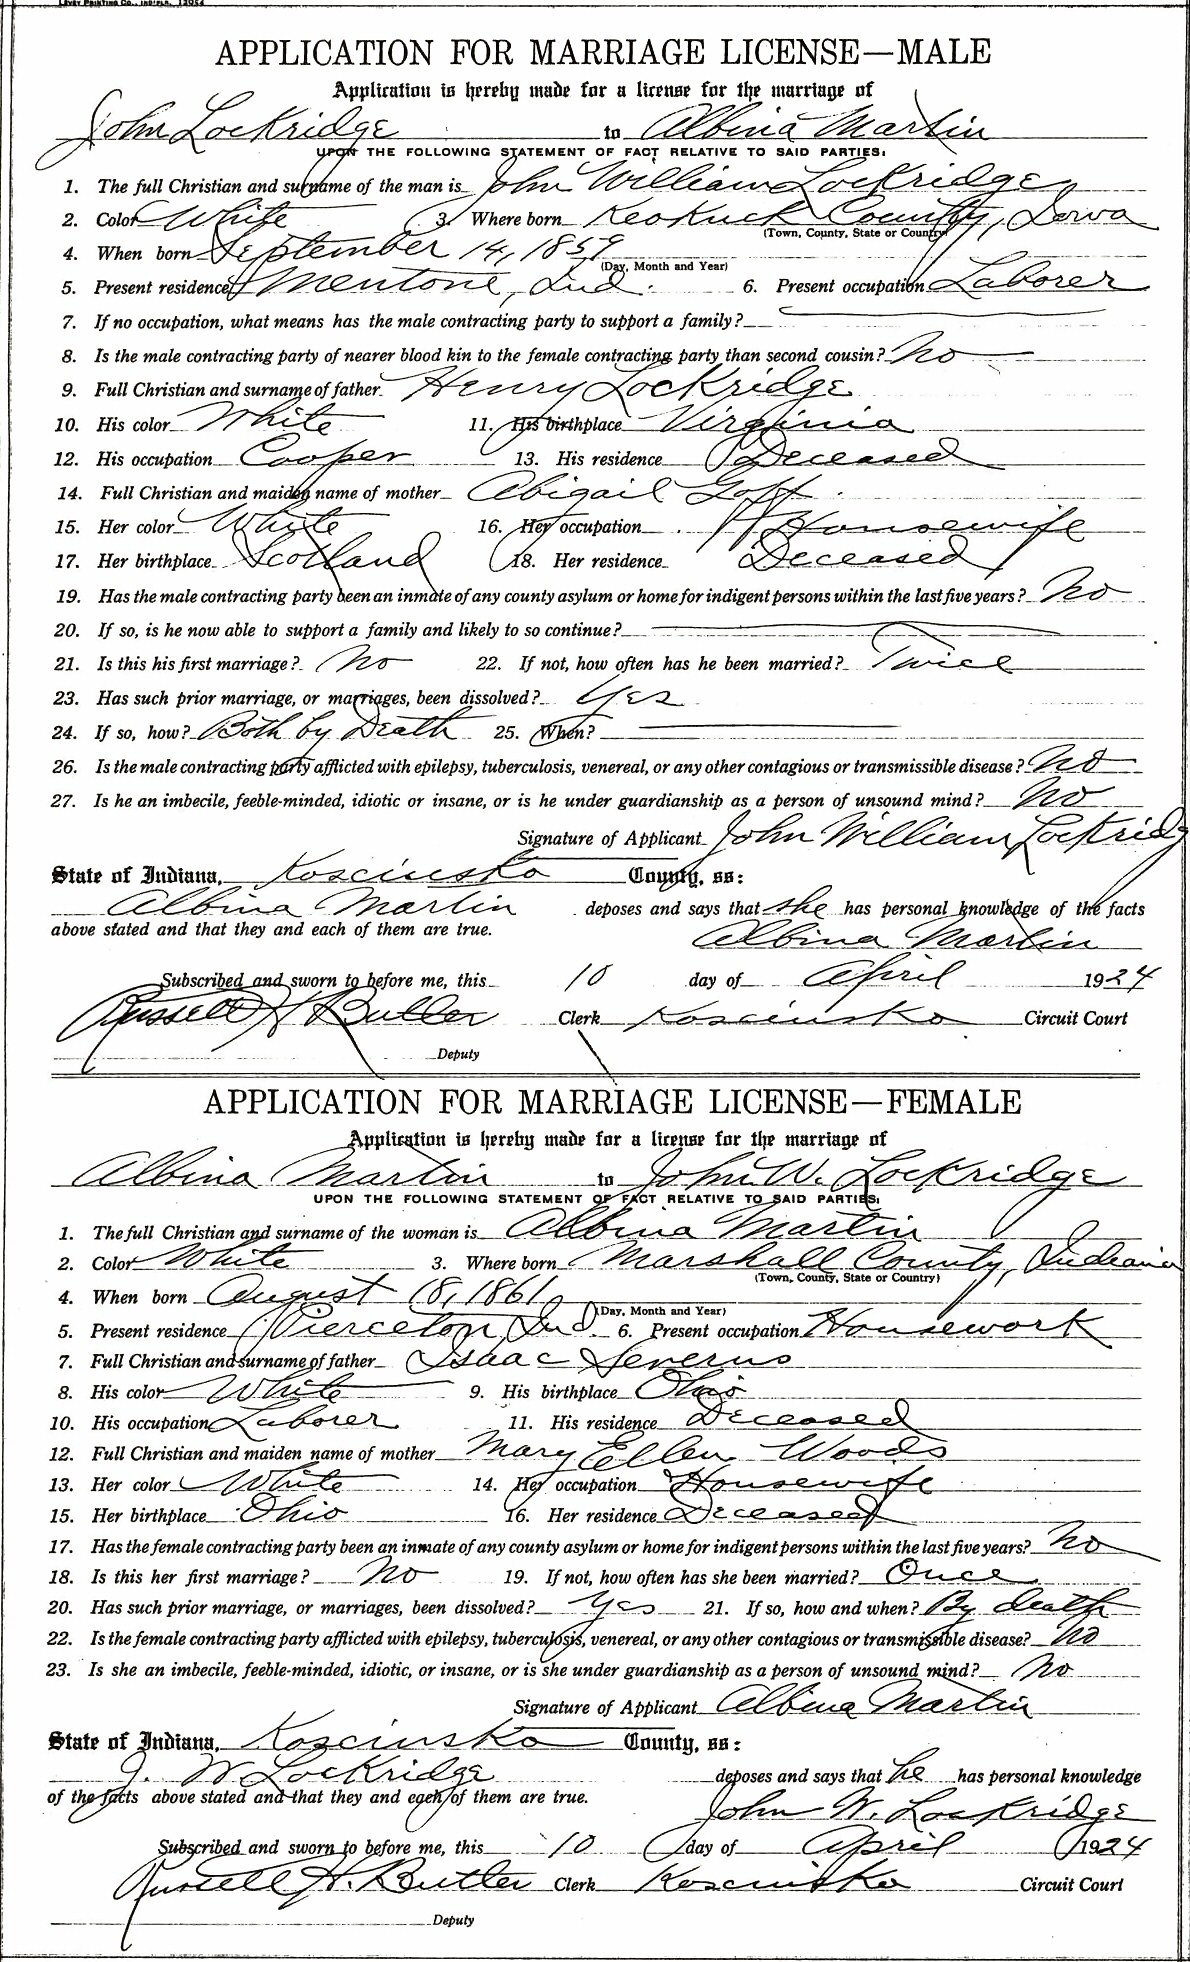 LEVEY PRINTING CO., IND'PLS. 12054
APPLICATION FOR MARRIAGE LICENSE—MALE
Application is hereby made for a license for the marriage of
John Lockridge to Albina Martin
UPON THE FOLLOWING STATEMENT OF FACT RELATIVE TO SAID PARTIES:
1. The full Christian and surname of the man is John William Lockridge
2. Color White 3. Where born Keokuck County, Iowa
(Town, County, State or Country)
4. When born September 14, 1859
(Day, Month and Year)
5. Present residence Mentone, Ind. 6. Present occupation Laborer
7. If no occupation, what means has the male contracting party to support a family?
8. Is the male contracting party of nearer blood kin to the female contracting party than second cousin? No
9. Full Christian and surname of father Henry Lockridge
10. His color White 11. His birthplace Virginia
12. His occupation Cooper 13. His residence Deceased
14. Full Christian and maiden name of mother Abigail Goff
15. Her color White 16. Her occupation Housewife
17. Her birthplace Scotland 18. Her residence Deceased
19. Has the male contracting party been an inmate of any county asylum or home for indigent persons within the last five years? No
20. If so, is he now able to support a family and likely to so continue?
21. Is this his first marriage? No 22. If not, how often has he been married? Twice
23. Has such prior marriage, or marriages, been dissolved? Yes
24. If so, how? Both by Death 25. When?
26. Is the male contracting party afflicted with epilepsy, tuberculosis, venereal, or any other contagious or transmissible disease? No
27. Is he an imbecile, feeble-minded, idiotic or insane, or is he under guardianship as a person of unsound mind? No
Signature of Applicant John William Lockridg
State of Indiana, Kosciusko County, ss:
Albina Martin deposes and says that she has personal knowledge of the facts
above stated and that they and each of them are true.
Albina Martin
Subscribed and sworn to before me, this 10 day of April 1924
Russell H. Butler Clerk Kosciusko Circuit Court
Deputy
APPLICATION FOR MARRIAGE LICENSE—FEMALE
Application is hereby made for a license for the marriage of
Albina Martin to John W. Lockridge
UPON THE FOLLOWING STATEMENT OF FACT RELATIVE TO SAID PARTIES:
1. The full Christian and surname of the woman is Albina Martin
2. Color White 3. Where born Marshall County, Indiana
(Town, County, State or Country)
4. When born August 18, 1861
(Day, Month and Year)
5. Present residence Pierceton, Ind. 6. Present occupation Housework
7. Full Christian and surname of father Isaac Severns
8. His color White 9. His birthplace Ohio
10. His occupation Laborer 11. His residence Deceased
12. Full Christian and maiden name of mother Mary Ellen Woods
13. Her color White 14. Her occupation Housewife
15. Her birthplace Ohio 16. Her residence Deceased
17. Has the female contracting party been an inmate of any county asylum or home for indigent persons within the last five years? No
18. Is this her first marriage? No 19. If not, how often has she been married? Once
20. Has such prior marriage, or marriages, been dissolved? Yes 21. If so, how and when? By death
22. Is the female contracting party afflicted with epilepsy, tuberculosis, venereal, or any other contagious or transmissible disease? No
23. Is she an imbecile, feeble-minded, idiotic, or insane, or is she under guardianship as a person of unsound mind? No
Signature of Applicant Albina Martin
State of Indiana, Kosciusko County, ss:
J. W Lockridge deposes and says that he has personal knowledge
of the facts above stated and that they and each of them are true.
John W. Lockridge
Subscribed and sworn to before me, this 10 day of April 1924
Russell H. Butler Clerk Kosciusko Circuit Court
Deputy